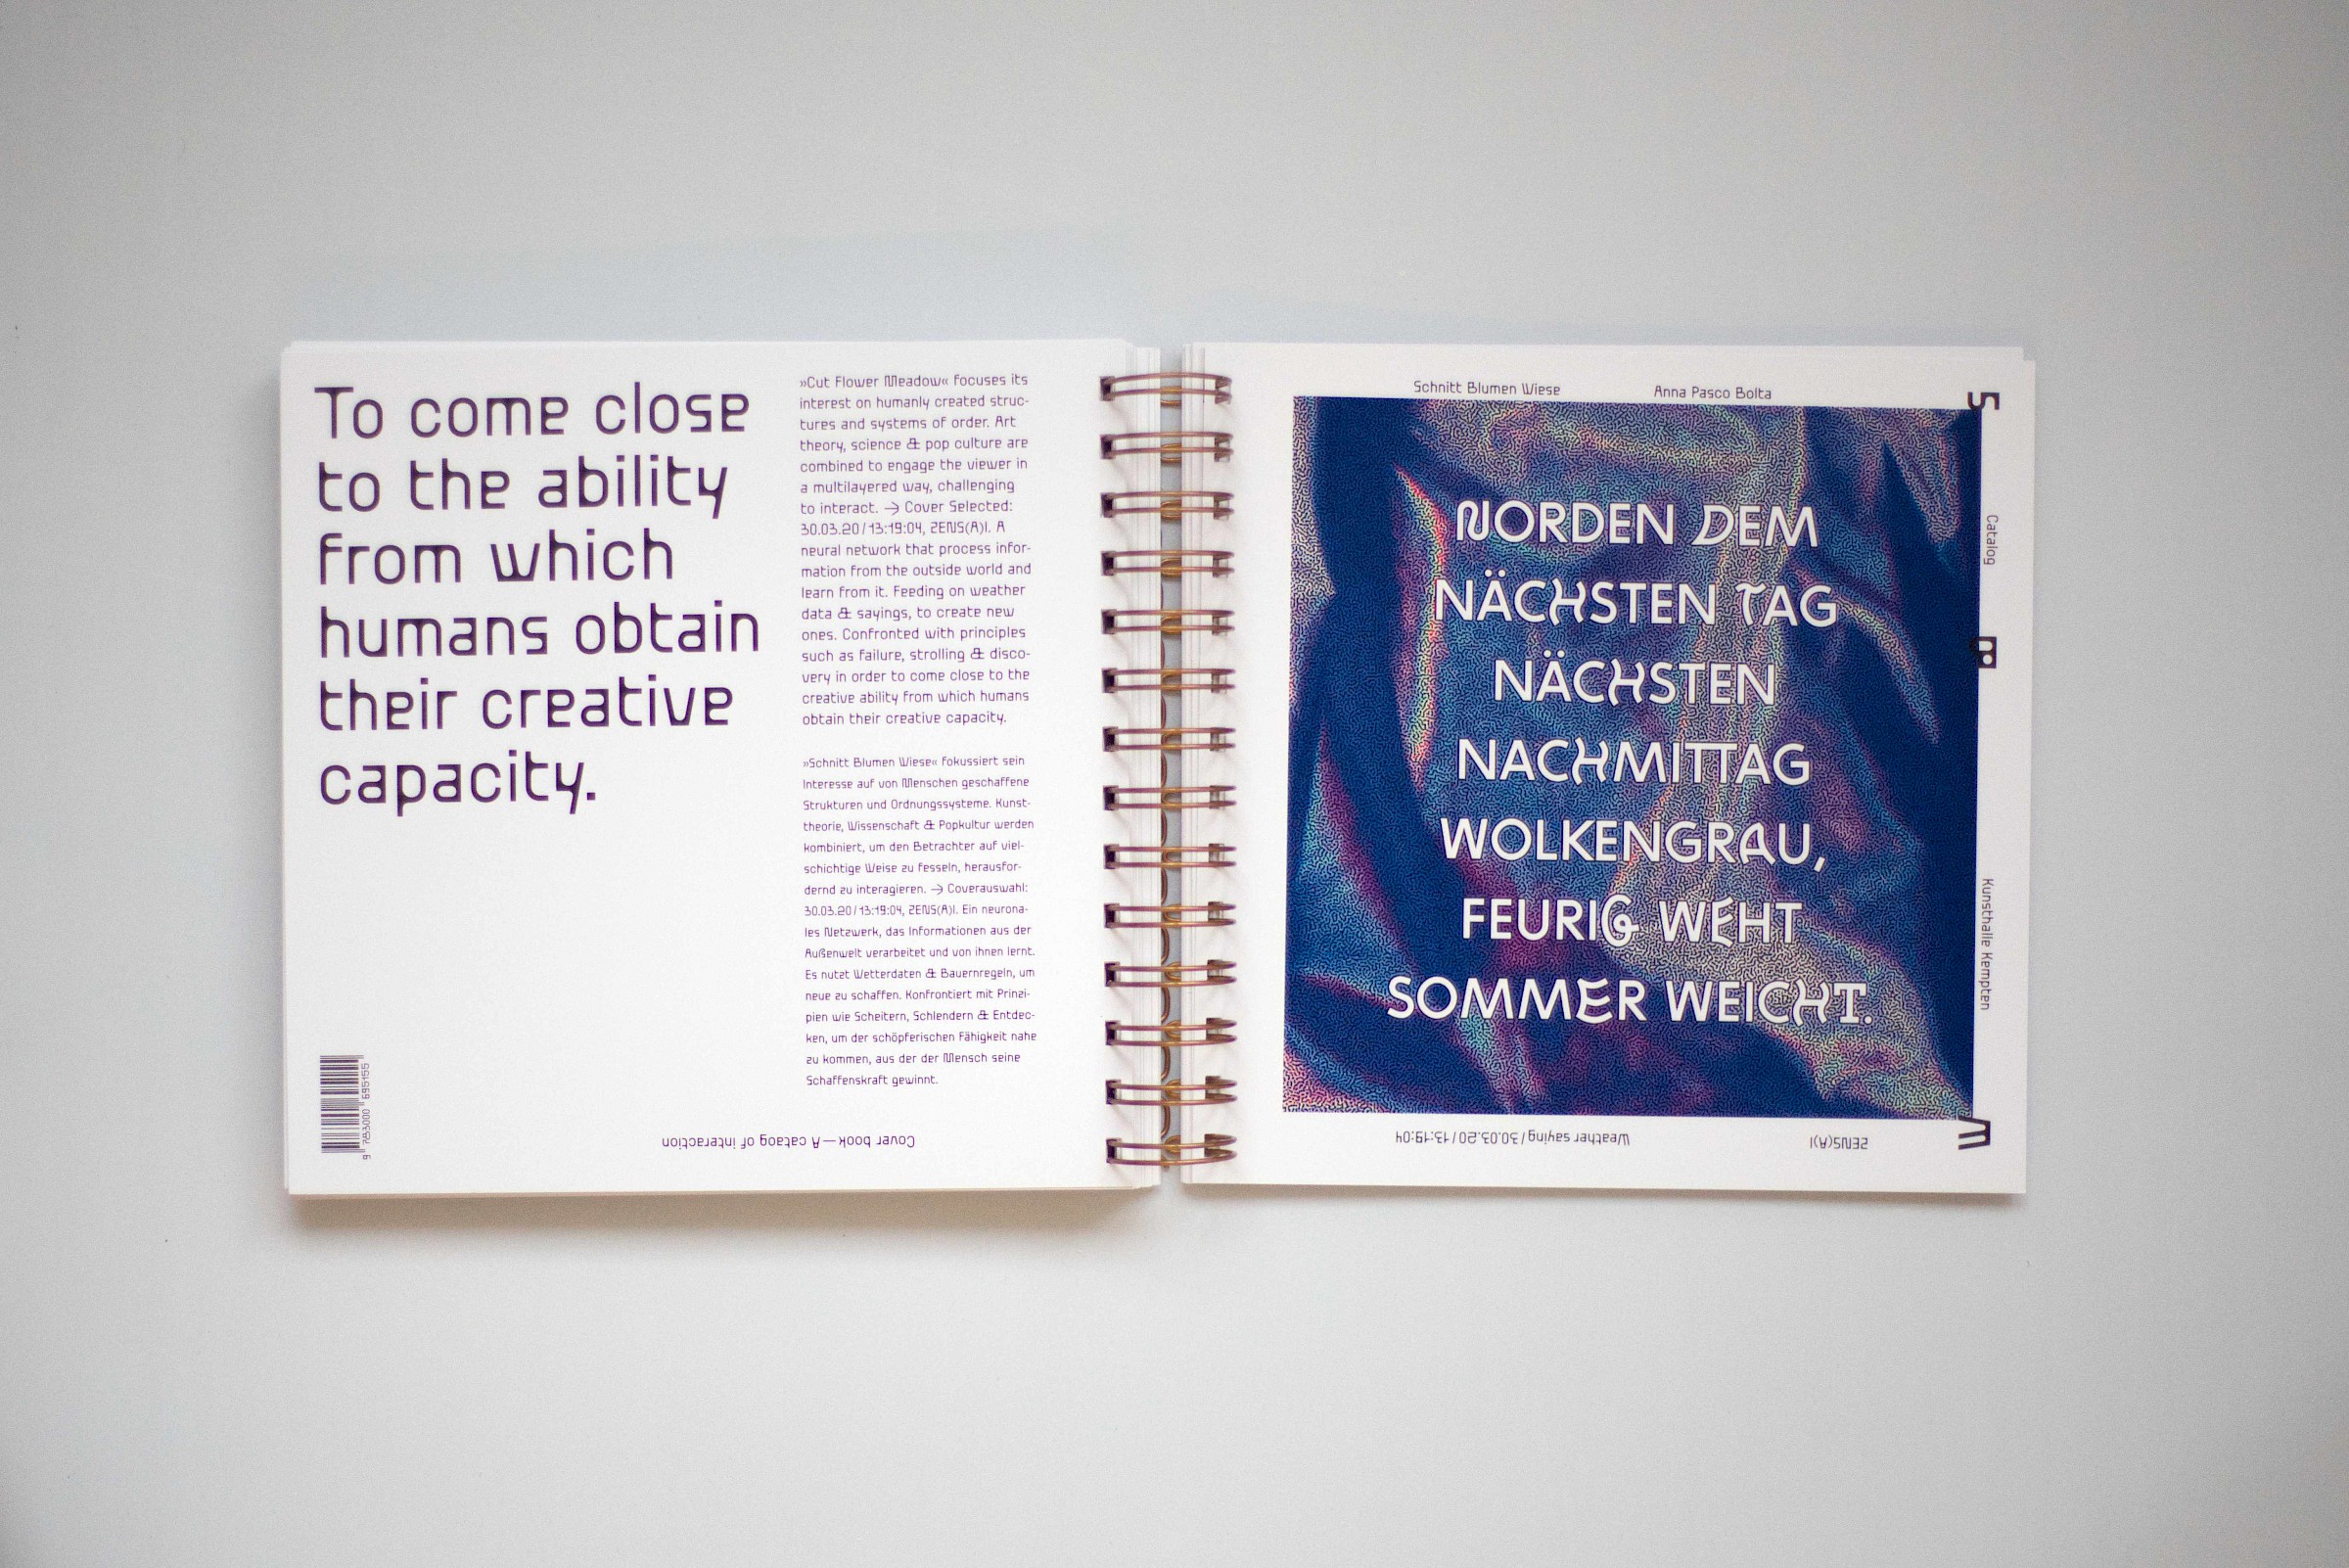 To come close
to the ability
from which
humans obtain
their creative
capacity.
»Cut Flower Meadow« focuses its
interest on humanly created struc-
tures and systems of order. Art
theory, science & pop culture are
combined to engage the viewer in
a multilayered way, challenging
to interact. → Cover Selected:
30.03.20/13:19:04, ZENS(A)I. A
neural network that process infor-
mation from the outside world and
learn from it. Feeding on weather
data & sayings, to create new
ones. Confronted with principles
such as failure, strolling & disco-
very in order to come close to the
creative ability from which humans
obtain their creative capacity.
»Schnitt Blumen Wiese« fokussiert sein
Interesse auf von Menschen geschaffene
Strukturen und Ordnungssysteme. Kunst-
theorie, Wissenschaft & Popkultur werden
kombiniert, um den Betrachter auf viel-
schichtige Weise zu fesseln, herausfor-
dernd zu interagieren. → Coverauswahl:
30.03.20/13:19:04, ZENS(A)I. Ein neurona-
les Netzwerk, das Informationen aus der
Außenwelt verarbeitet und von ihnen lernt.
Es nutzt Wetterdaten & Bauernregeln, um
neue zu schaffen. Konfrontiert mit Prinzi-
pien wie Scheitern, Schlendern & Entdec-
ken, um der schöpferischen Fähigkeit nahe
zu kommen, aus der der Mensch seine
Schaffenskraft gewinnt.
9 783000 695155
Cover book—A cataog of interaction
Schnitt Blumen Wiese
Anna Pasco Bolta
NORDEN DEM
NÄCHSTEN TAG
NÄCHSTEN
NACHMITTAG
WOLKENGRAU,
FEURIG WEHT
SOMMER WEICHT.
S
Catalog
B
Kunsthalle Kempten
W
ZENS(A)I
Weather saying/30.03.20/13:19:04